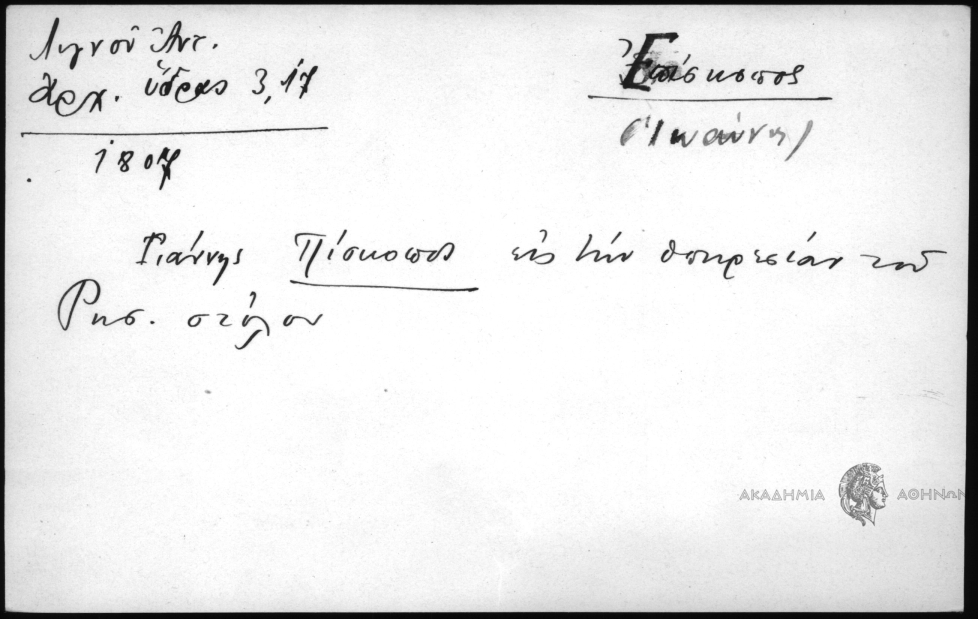 Λιγνοῦ Ἀντ.
Ἀρχ. ὕδρας 3,17
1807
Ἐπίσκοπος
(Ἰωάννης)
Γιάννης Πίσκοπος εἰς τήν ὑπηρεσίαν τοῦ
Ρησ. στόλου
ΑΚΑΔΗΜΙΑ ΑΘΗΝΩΝ